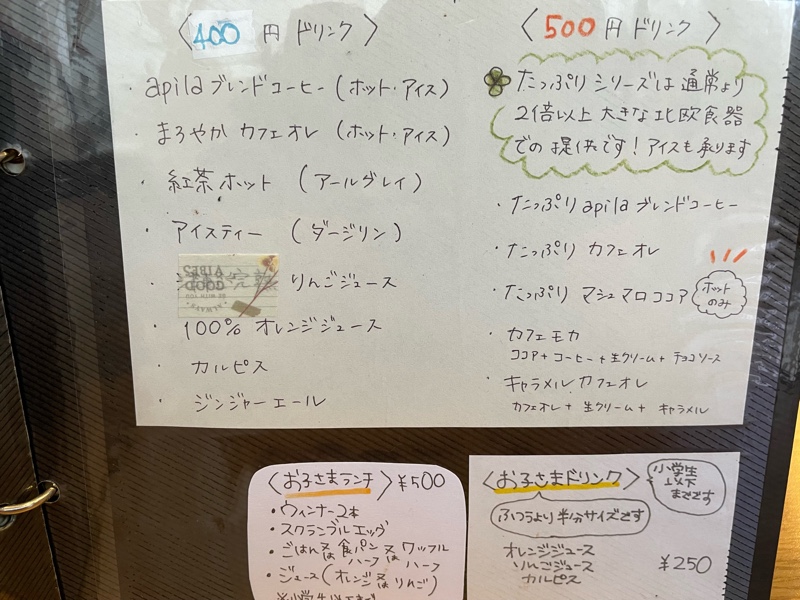 〈400円 ドリンク〉
・apilaブレンドコーヒー（ホット・アイス）
・まろやか カフェオレ（ホット・アイス）
・紅茶ホット（アールグレイ）
・アイスティー（ダージリン）
りんごジュース
・100% オレンジジュース
・カルピス
・ジンジャーエール
〈500円 ドリンク〉
たっぷりシリーズは通常より
2倍以上大きな北欧食器
での提供です！アイスも承ります
・たっぷりapilaブレンドコーヒー
・たっぷり カフェオレ
・たっぷり マシュマロココア
ホット
のみ
・カフェモカ
ココア+コーヒー+生クリーム+チョコソース
・キャラメルカフェオレ
カフェオレ+生クリーム+キャラメル
〈お子さまランチ〉¥500
・ウィンナー2本
・スクランブルエッグ
・ごはん又は食パン又はワッフル
ハーフ ハーフ
・ジュース（オレンジ又はりんご）
〈お子さまドリンク〉
小学生
以下
までです
ふつうより半分サイズです
オレンジジュース
りんごジュース ¥250
カルピス